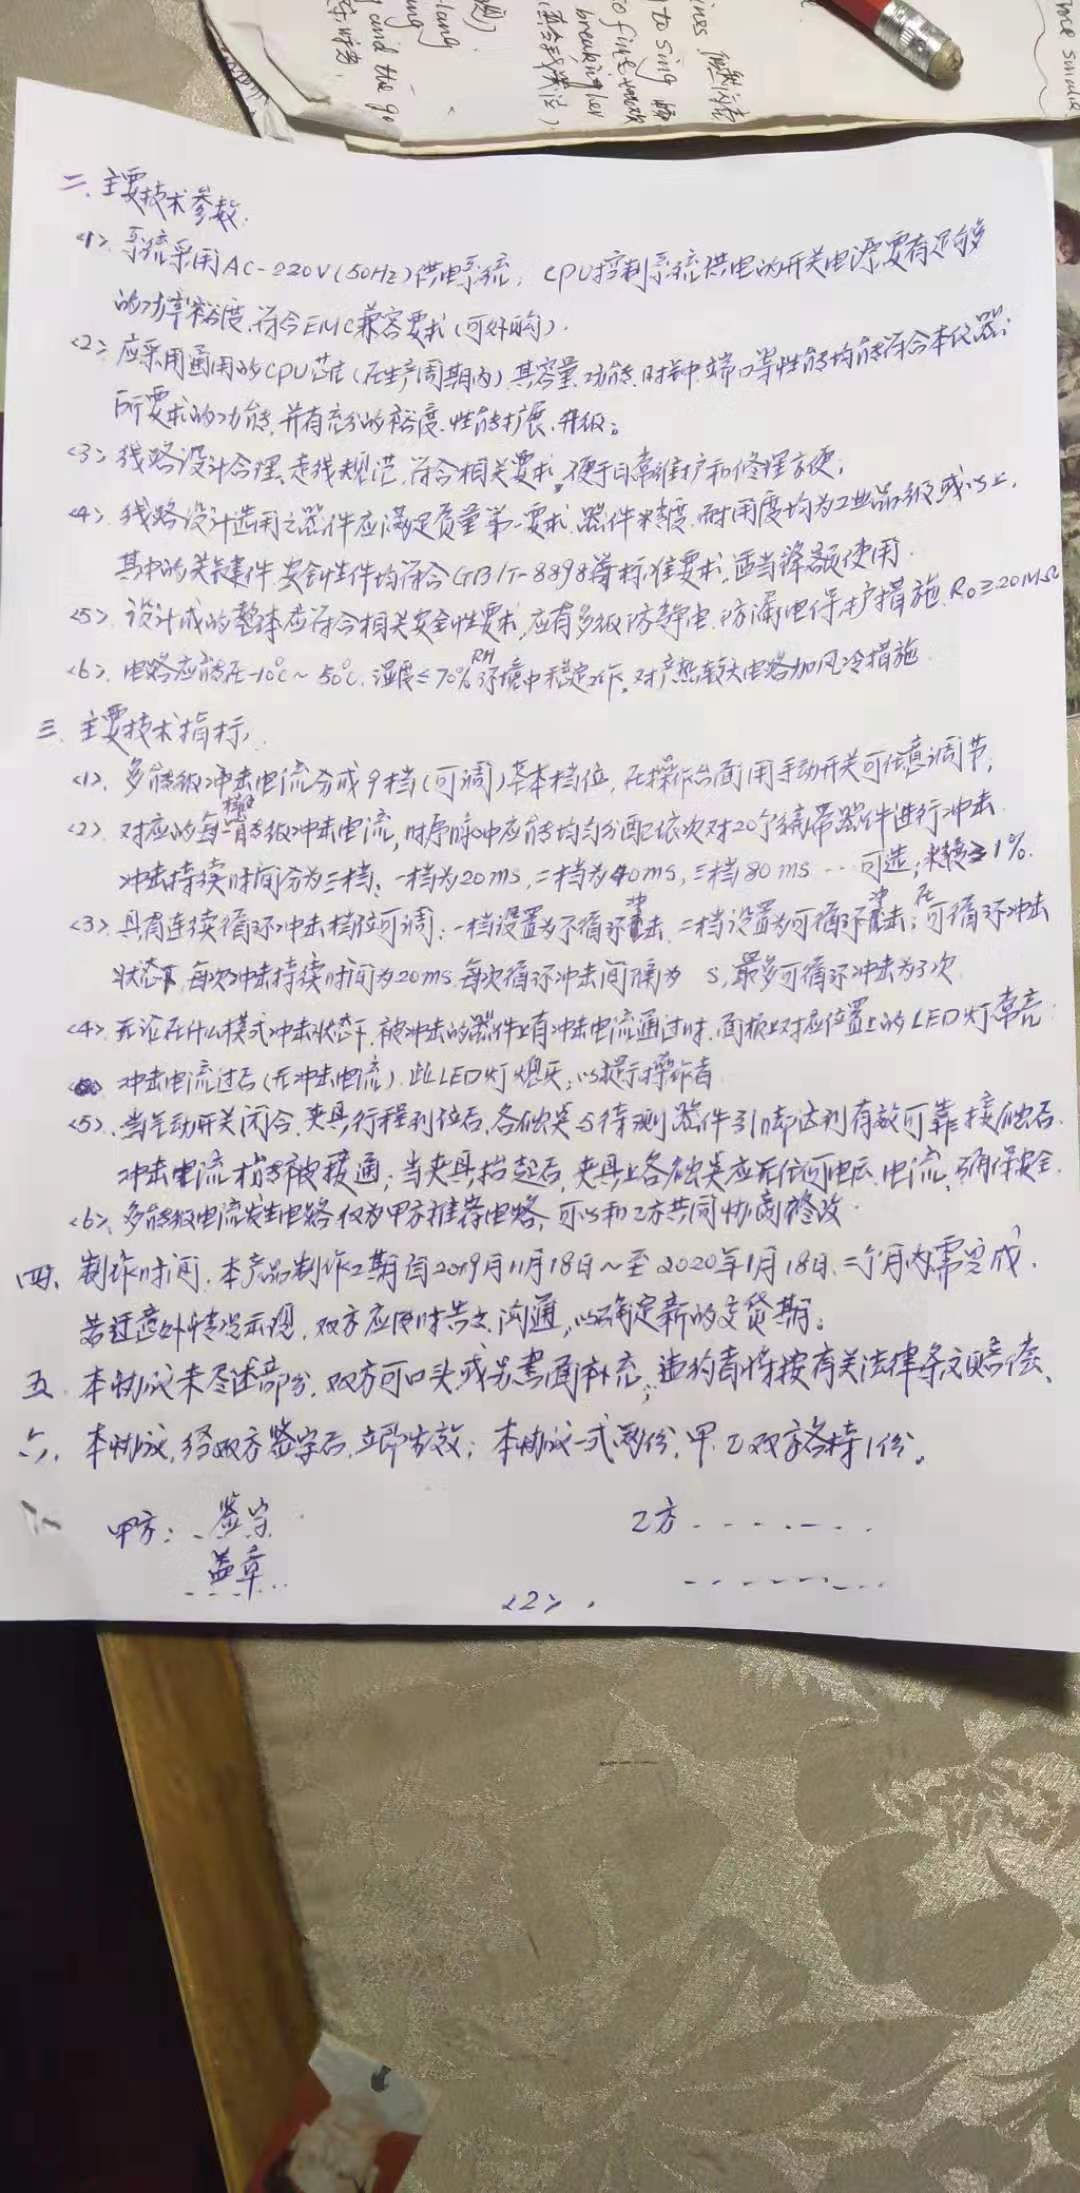 二、主要技术参数.
<1>. 系统采用AC-220V(50Hz)供电系统, CPU控制系统供电的开关电源要有足够
的功率裕度,符合EMC兼容要求(可外购).
<2>. 应采用通用的CPU芯片(在生产周期内),其容量、功能、时钟、端口等性能均能符合本仪器
所要求的功能,并有充分的裕度、性能扩展、升级。
<3>. 线路设计合理、走线规范、符合相关要求,便于日常维护和修理方便.
<4>. 线路设计选用之器件应满足质量第一要求.器件精度、耐用度均为工业品级或以上.
其中的关键件、安全性件均符合GB/T-8898等标准要求,适当降额使用.
<5>. 设计成的整体应符合相关安全性要求,应有多级防静电、防漏电保护措施.R0≥20MΩ
<6>. 电路应能在-10℃~50℃.湿度≤70%RH环境中稳定工作。对产热较大电路加风冷措施.
三、主要技术指标.
<1>. 多能级冲击电流分成9档(可调)基本档位,在操作台面用手动开关可任意调节.
<2>. 对应的每一档能级冲击电流,时序脉冲应能均匀分配依次对20个待器件进行冲击.
冲击持续时间分为三档:一档为20ms,二档为40ms,三档80ms…可选;精度≥1%.
<3>. 具有连续循环冲击档位可调:一档设置为不循环冲击.二档设置为可循环冲击;在可循环冲击
状态下,每次冲击持续时间为20ms,每次循环冲击间隔为 S,最多可循环冲击为3次
<4>. 无论在什么模式冲击状态下,被冲击的器件上有冲击电流通过时.面板上对应位置上的LED灯常亮.
冲击电流过后(无冲击电流).此LED灯熄灭;以提示操作者
<5>. 当气动开关闭合,夹具行程到位后,各触点与待测器件引脚达到有效可靠接触后.
冲击电流才能被接通;当夹具抬起后,夹具上各触点应无任何电压、电流,确保安全.
<6>. 多能级电流发生电路仅为甲方推荐电路,可以和乙方共同协商修改.
四、制作时间.本产品制作工期自2019月11月18日~至2020年1月18日.二个月内需完成.
若过意外情况出现,双方应及时告之沟通,以确定新的交货期。
五、本协议未尽述部分,双方可口头或另书面补充;违约者将按有关法律条文赔偿.
六、本协议,经双方签字后,立即生效;本协议一式两份,甲.乙双方各持1份。
甲方: 签字 乙方
盖章
<2>.